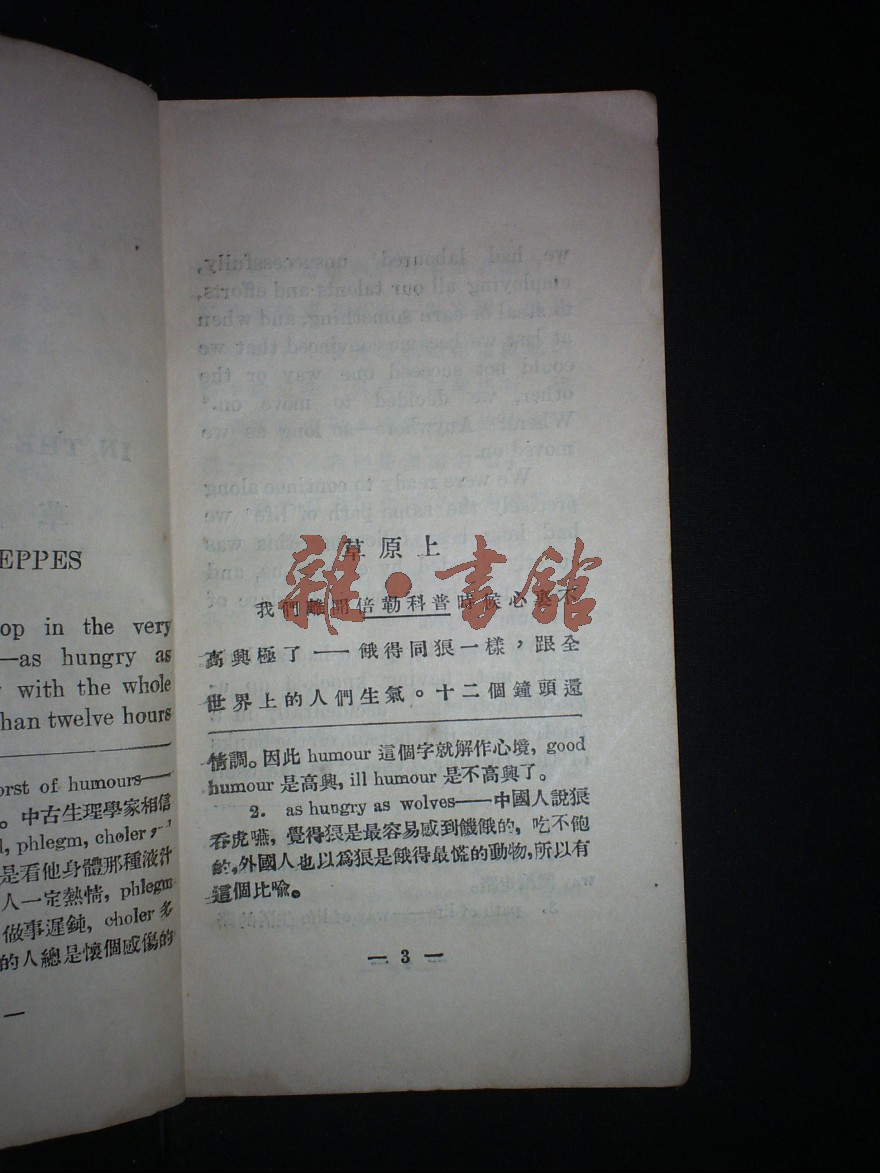 EPPES
op in the very
—as hungry as
with the whole
han twelve hours
orst of humours—
。中古生理學家相信
, phlegm, choler,
是看他身體那種液汁
人一定熱情, phlegm
做事遲鈍, choler 多
的人總是懷個感傷的
—
草原上
雜·書館
我們離開倍勒科普時候心裏不
高興極了——餓得同狼一樣，跟全
世界上的人們生氣。十二個鐘頭還
情調。因此 humour 這個字就解作心境, good
humour 是高興, ill humour 是不高興了。
2. as hungry as wolves——中國人說狼
吞虎嚥, 覺得狼是最容易感到饑餓的, 吃不飽
的,外國人也以爲狼是餓得最慌的動物,所以有
這個比喩。
— 3 —